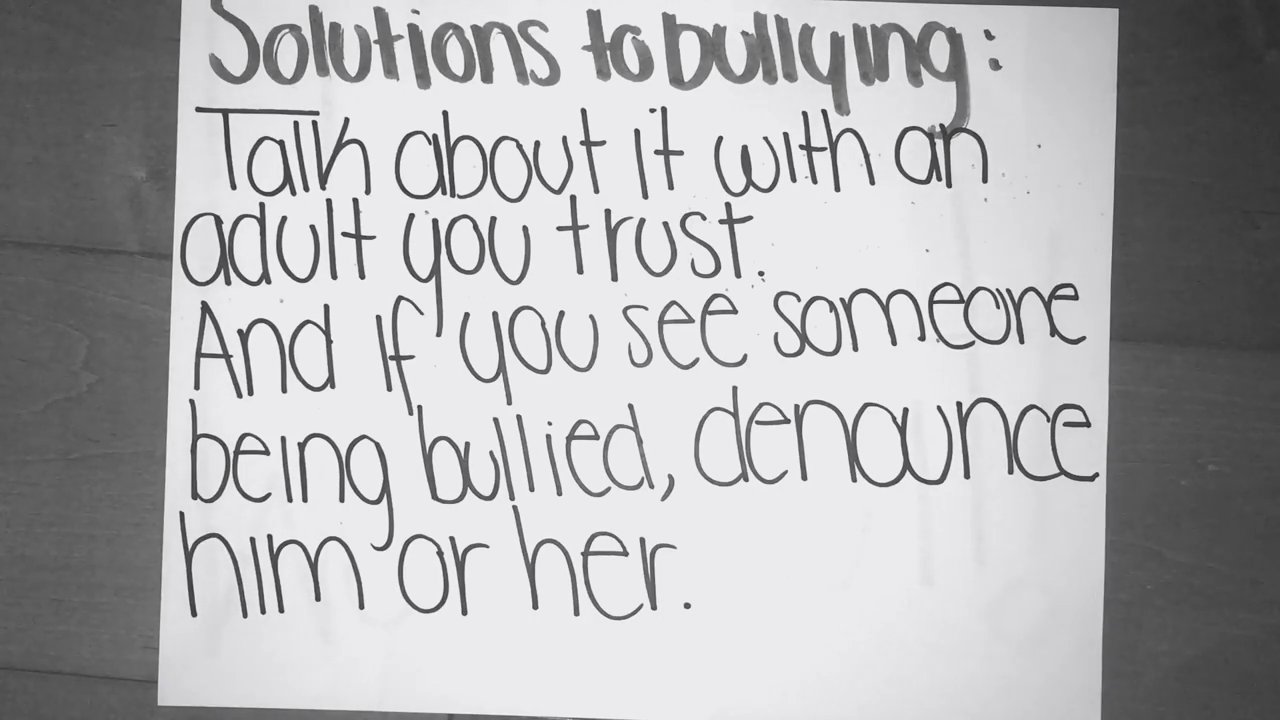 Solutions to bullying:
Talk about it with an
adult you trust.
And if you see someone
being bullied, denounce
him or her.